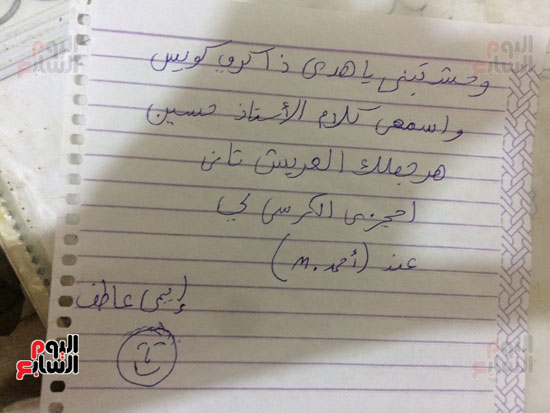 اليوم السابع
وحشتينى يا هدى ذاكرى كويس
واسمعى كلام الأستاذ حسين
هرجعلك العريش تانى
احجزى الكرسى لي
عند (أحمد .m)
إيمى عاطف
اليوم السابع
اليوم السابع